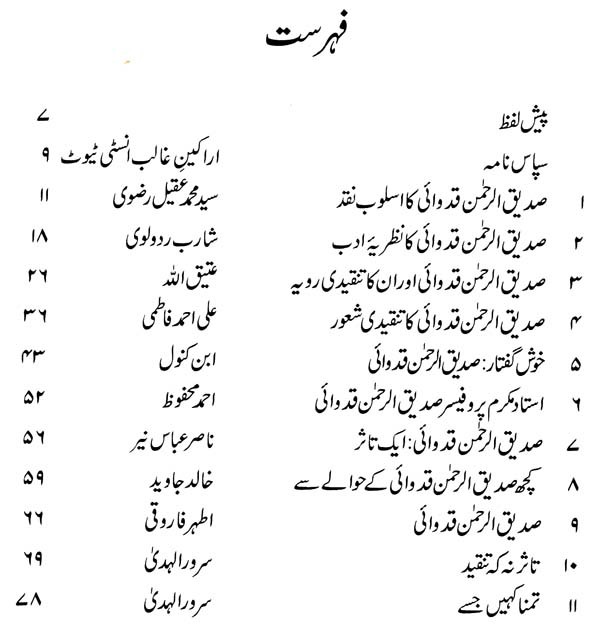 فہرست
پیش لفظ ۷
سپاس نامہ اراکینِ غالب انسٹی ٹیوٹ ۹
۱ صدیق الرحمٰن قدوائی کا اسلوب نقد سید محمد عقیل رضوی ۱۱
۲ صدیق الرحمٰن قدوائی کا نظریۂ ادب شارب ردولوی ۱۸
۳ صدیق الرحمٰن قدوائی اور ان کا تنقیدی رویہ عتیق اللہ ۲۶
۴ صدیق الرحمٰن قدوائی کا تنقیدی شعور علی احمد فاطمی ۳۶
۵ خوش گفتار: صدیق الرحمٰن قدوائی ابن کنول ۴۳
۶ استاد مکرم پروفیسر صدیق الرحمٰن قدوائی احمد محفوظ ۵۲
۷ صدیق الرحمٰن قدوائی: ایک تاثر ناصر عباس نیر ۵۶
۸ کچھ صدیق الرحمٰن قدوائی کے حوالے سے خالد جاوید ۵۹
۹ صدیق الرحمٰن قدوائی اطہر فاروقی ۶۶
۱۰ تاثر نہ کہ تنقید سرور الہدیٰ ۶۹
۱۱ تمنا کہیں جسے سرور الہدیٰ ۷۸